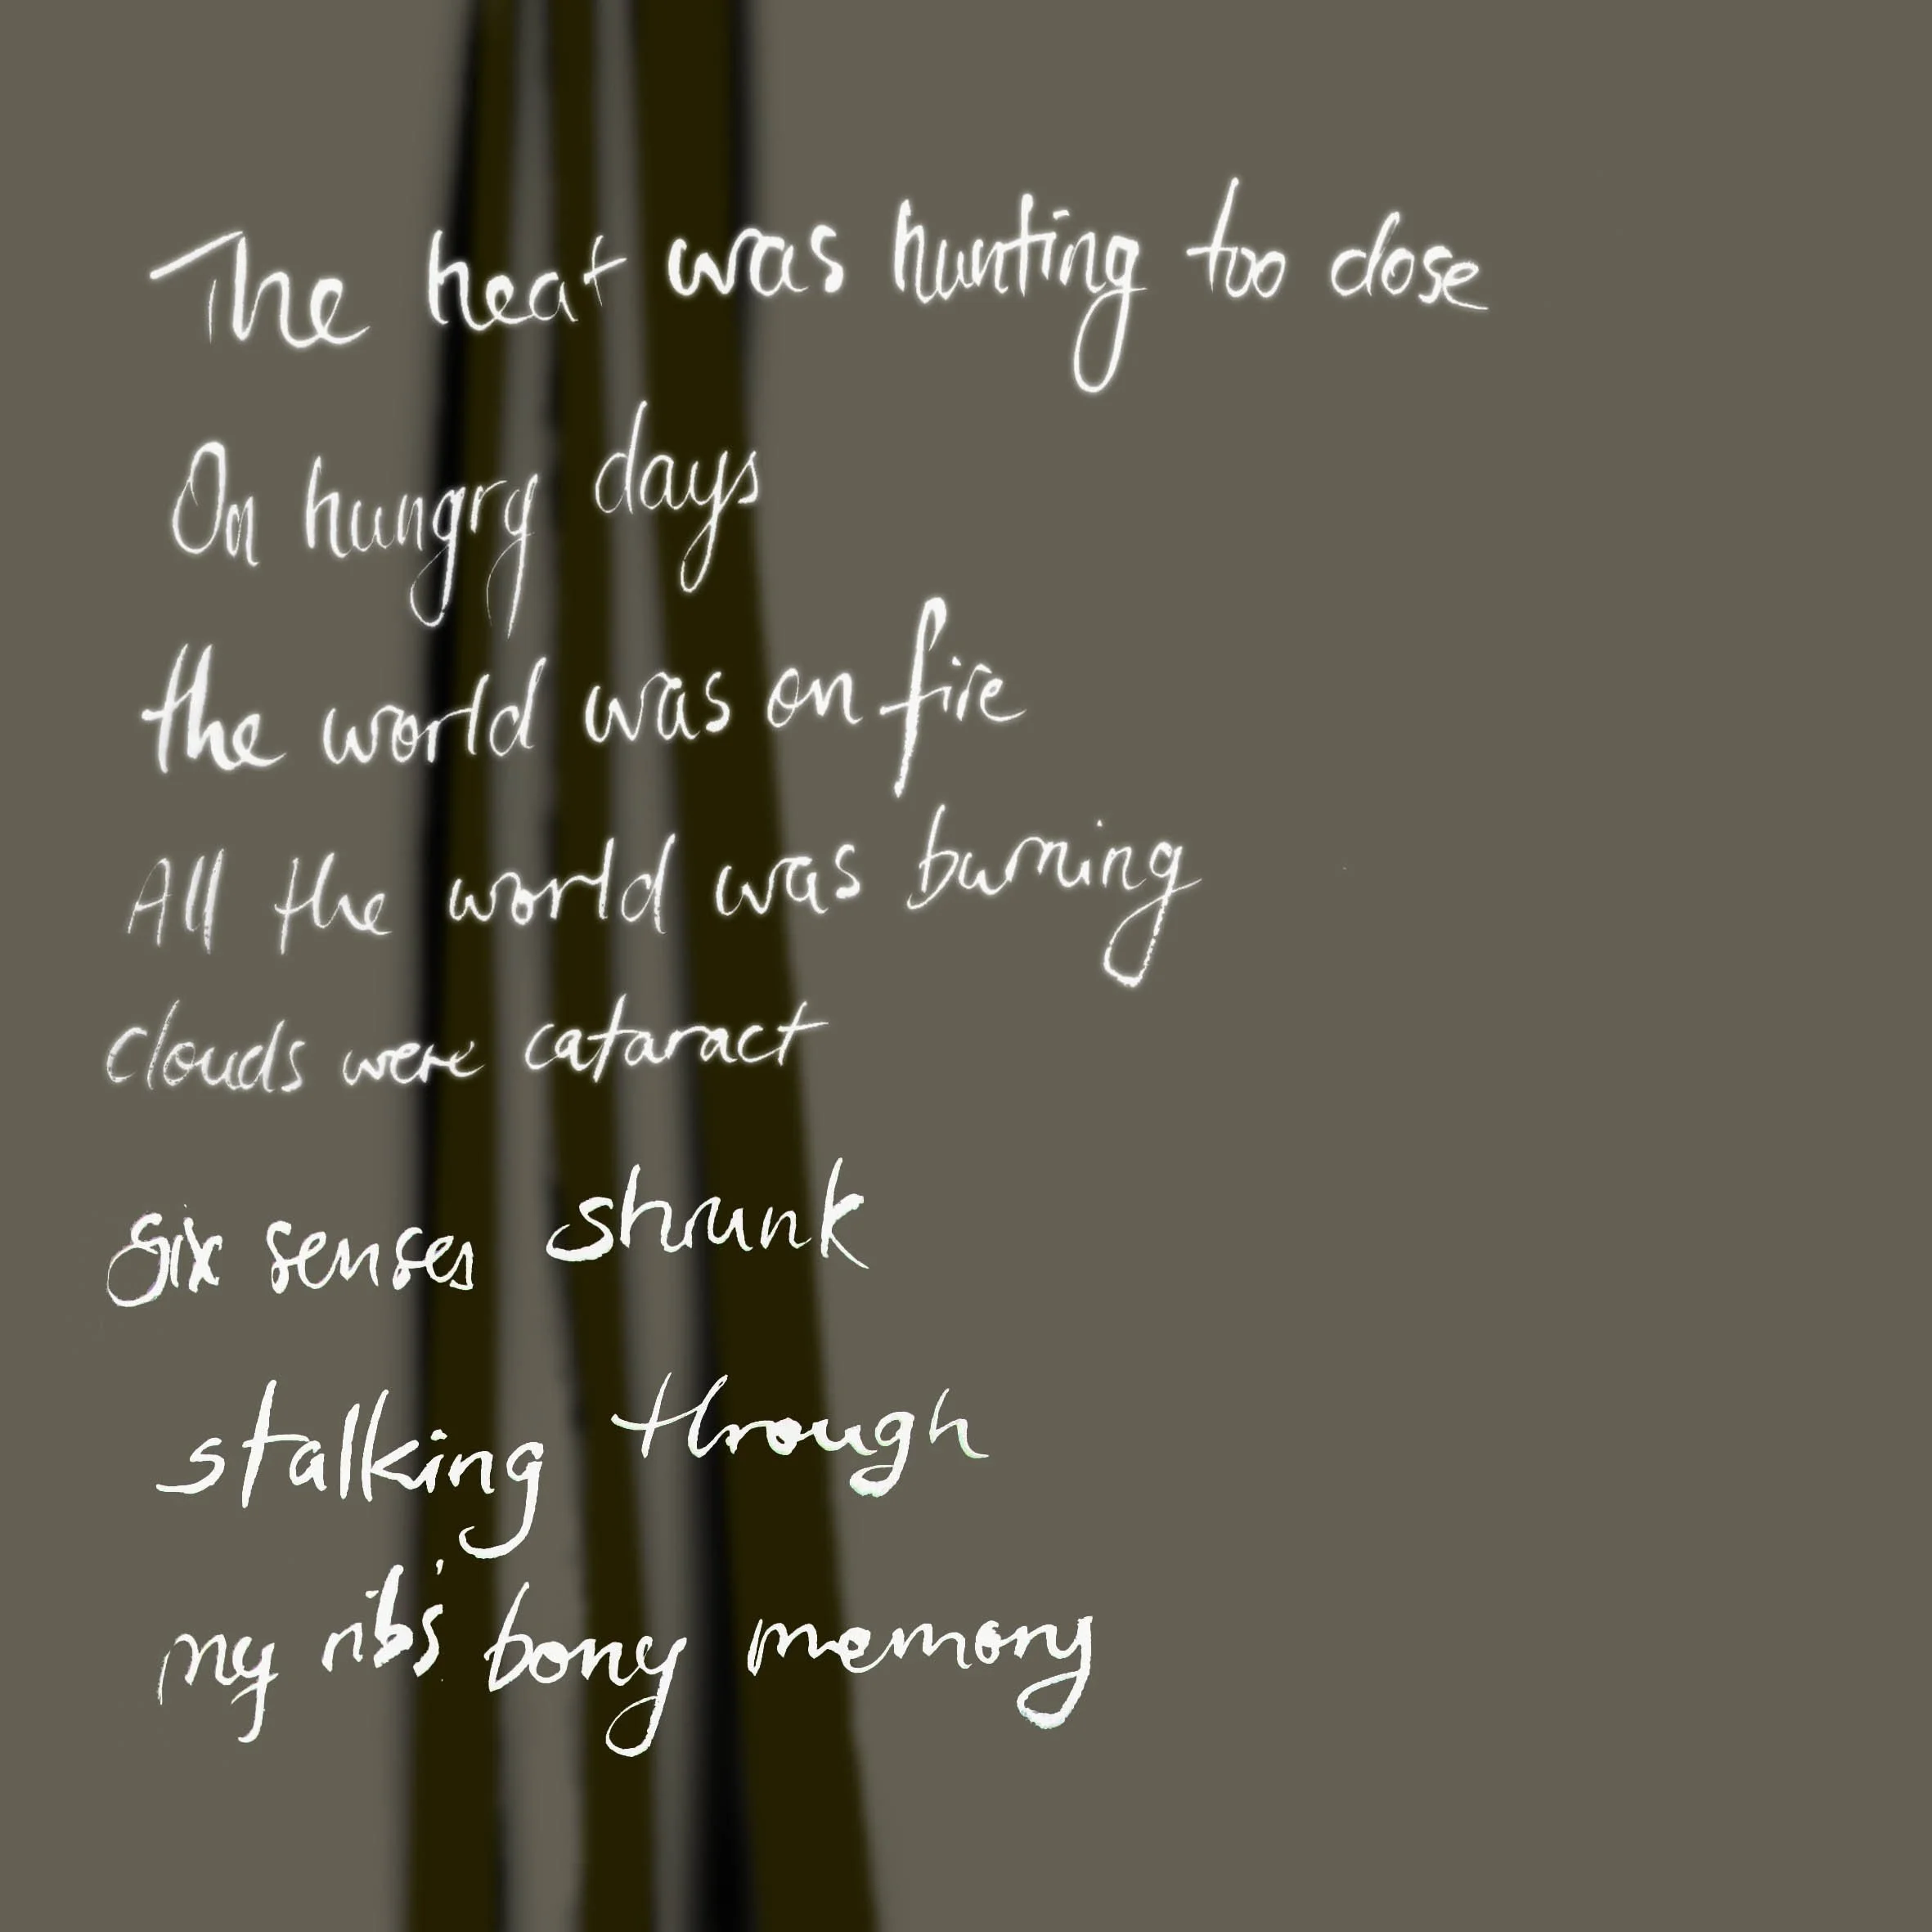 The heat was hunting too close
On hungry days
the world was on fire
All the world was burning
clouds were cataract
six senses shrunk
stalking through
my ribs' bony memory